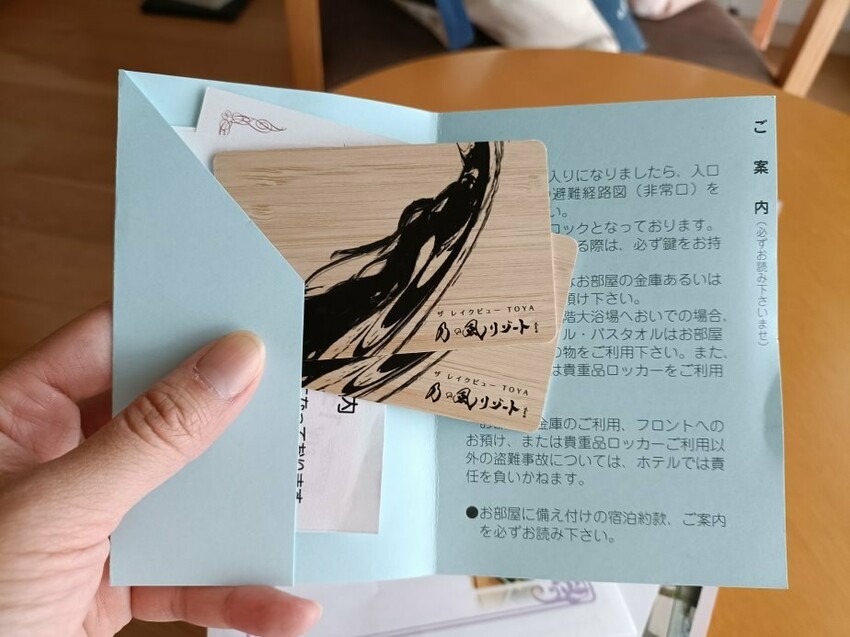 ご案内(必ずお読み下さいませ)
入りになりましたら、入口
避難経路図(非常口)を
い。
ロックとなっております。
る際は、必ず鍵をお持
お部屋の金庫あるいは
預け下さい。
階大浴場へおいでの場合、
ル・バスタオルはお部屋
の物をご利用下さい。また、
は貴重品ロッカーをご利用
金庫のご利用、フロントへの
お預け、または貴重品ロッカーご利用以
外の盗難事故については、ホテルでは責
任を負いかねます。
●お部屋に備え付けの宿泊約款、ご案内
を必ずお読み下さい。
ザ レイクビュー TOYA
乃の風リゾート
ザ レイクビュー TOYA
乃の風リゾート
内
なっております